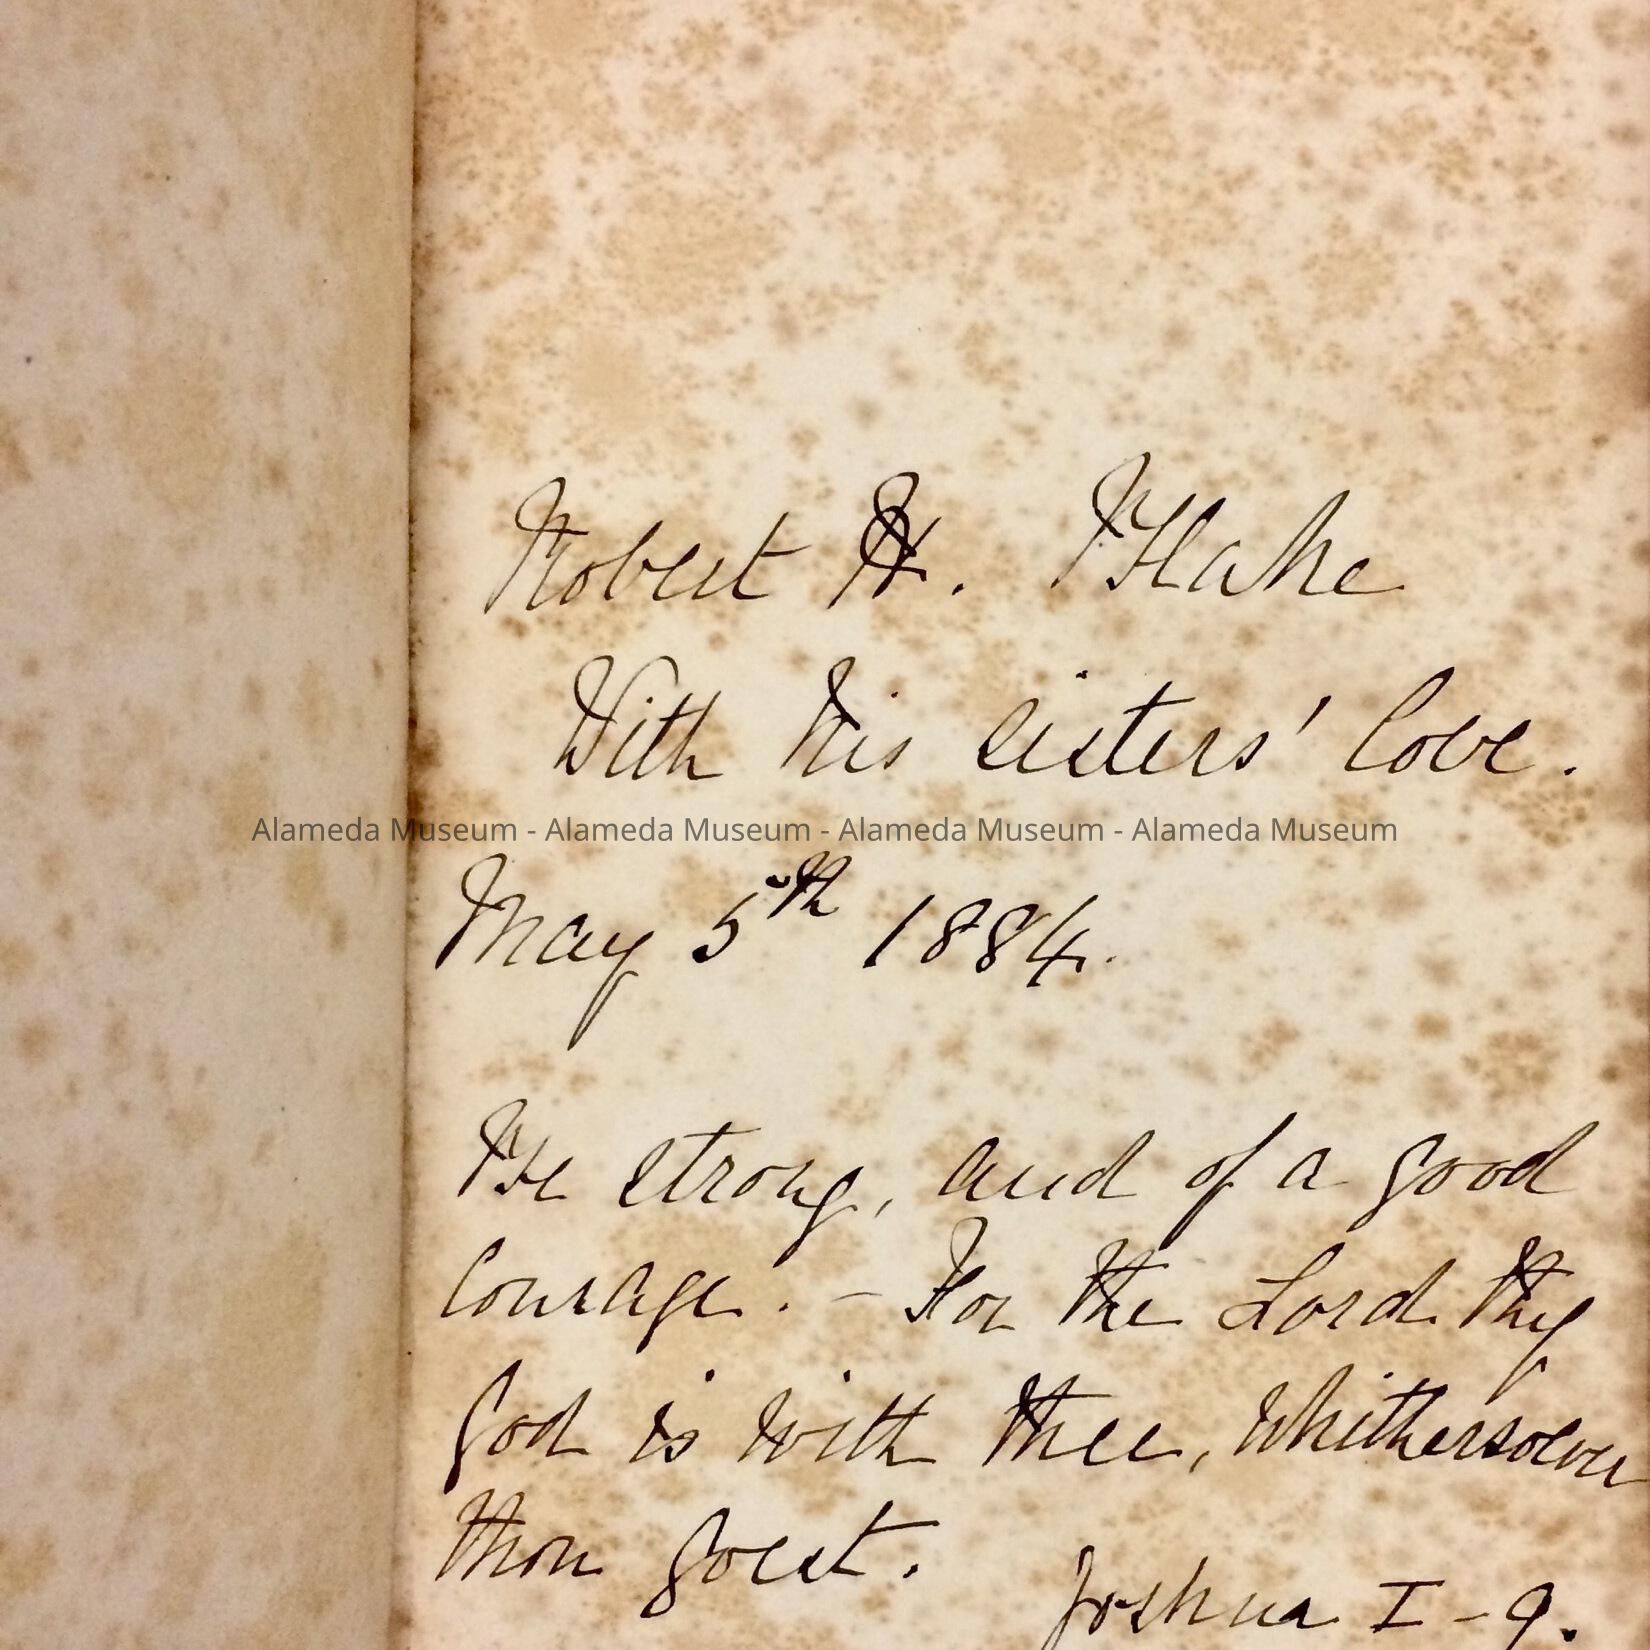 Robert H. Blake
With his sisters' love.
Alameda Museum - Alameda Museum - Alameda Museum - Alameda Museum
May 5th 1884.
Be strong, and of a good
courage. - For the Lord thy
God is with thee, whithersoever
thou goest.
Joshua I - 9.